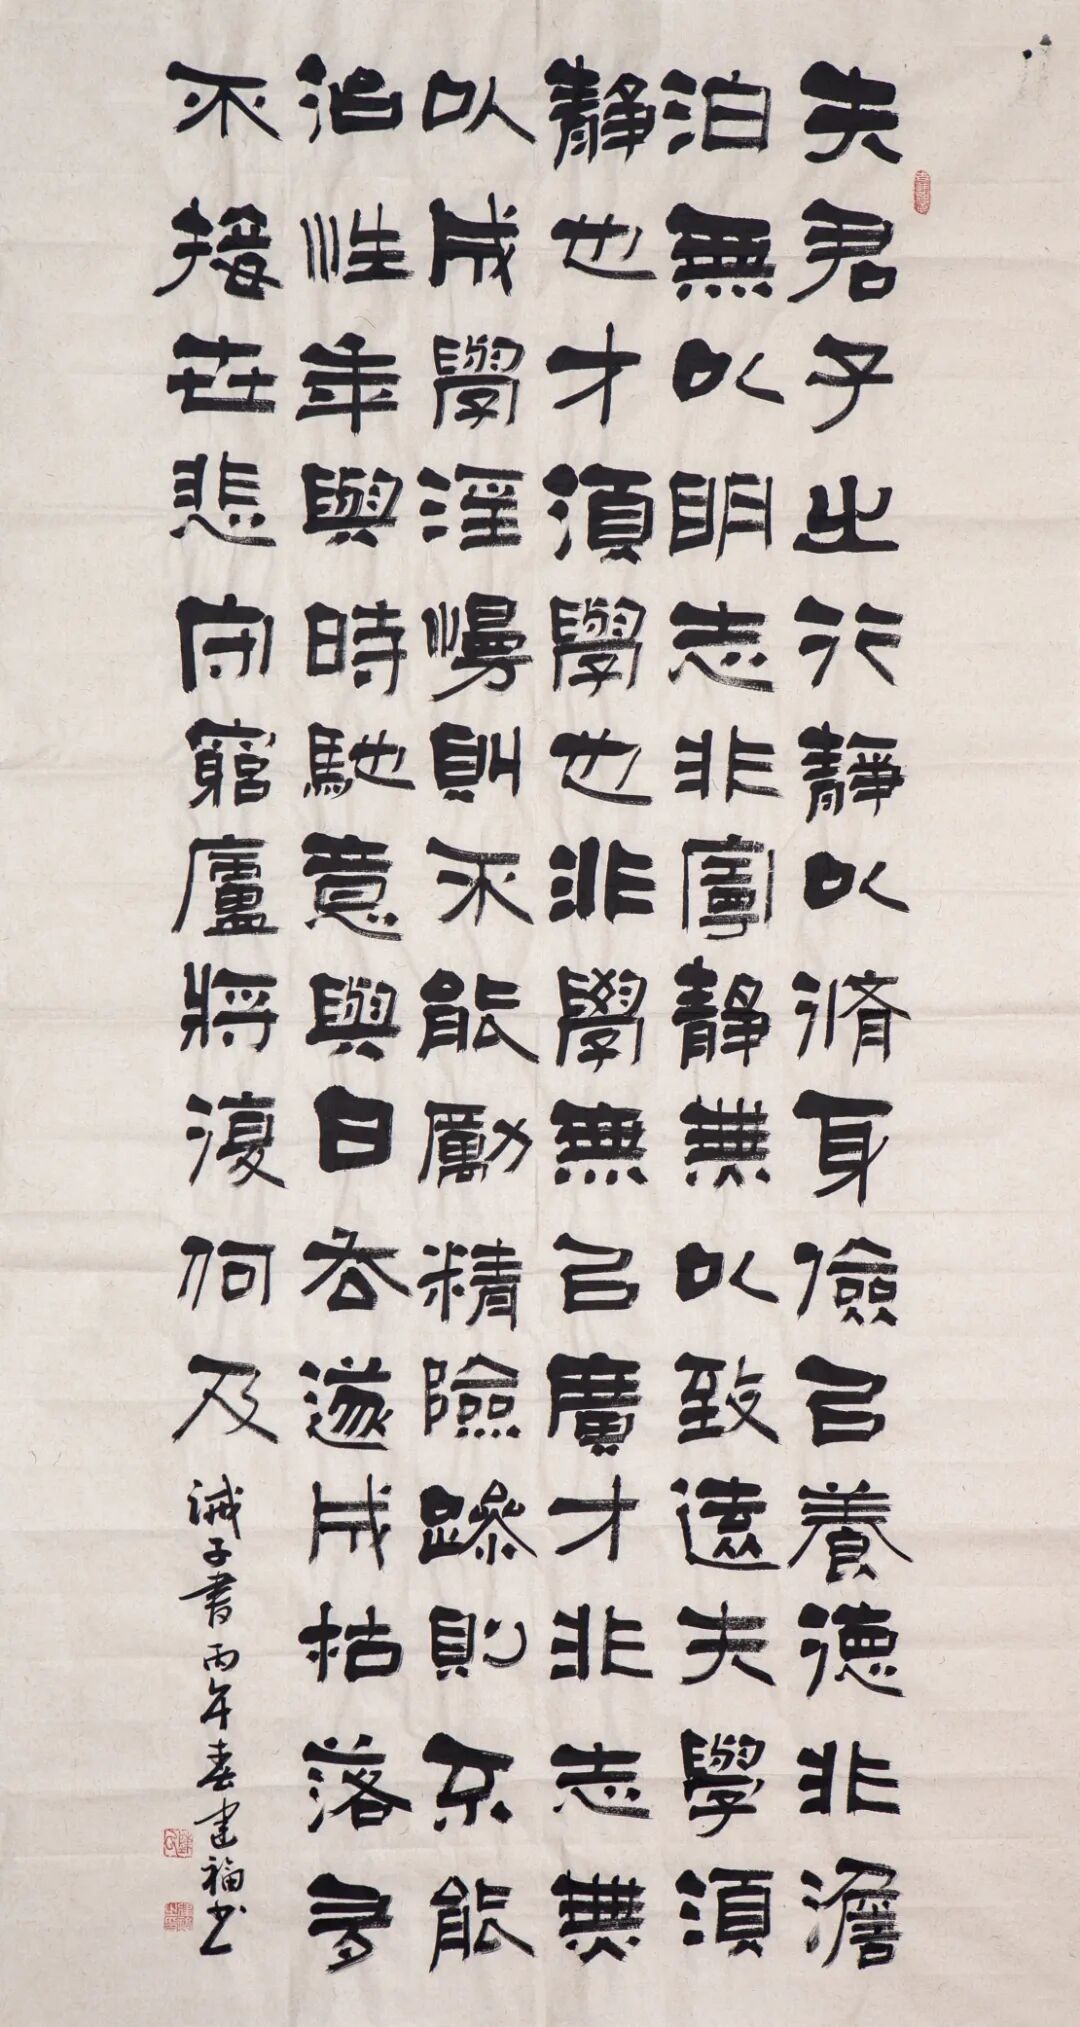 夫君子之行靜以脩身儉㠯養德非澹
泊無以明志非寧靜無以致遠夫學須
靜也才須學也非學無㠯廣才非志無
以成學淫慢則不能勵精險躁則不能
治性年與時馳意與日去遂成枯落多
不接世悲守窮廬將復何及
誡子書丙午春建福書